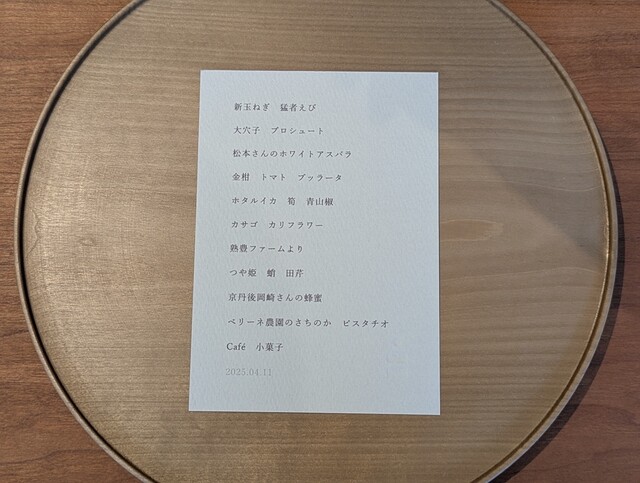 新玉ねぎ　猛者えび
大穴子　プロシュート
松本さんのホワイトアスパラ
金柑　トマト　ブッラータ
ホタルイカ　筍　青山椒
カサゴ　カリフラワー
熟豊ファームより
つや姫　蛤　田芹
京丹後岡崎さんの蜂蜜
ベリーネ農園のさちのか　ピスタチオ
Café　小菓子
2025.04.11